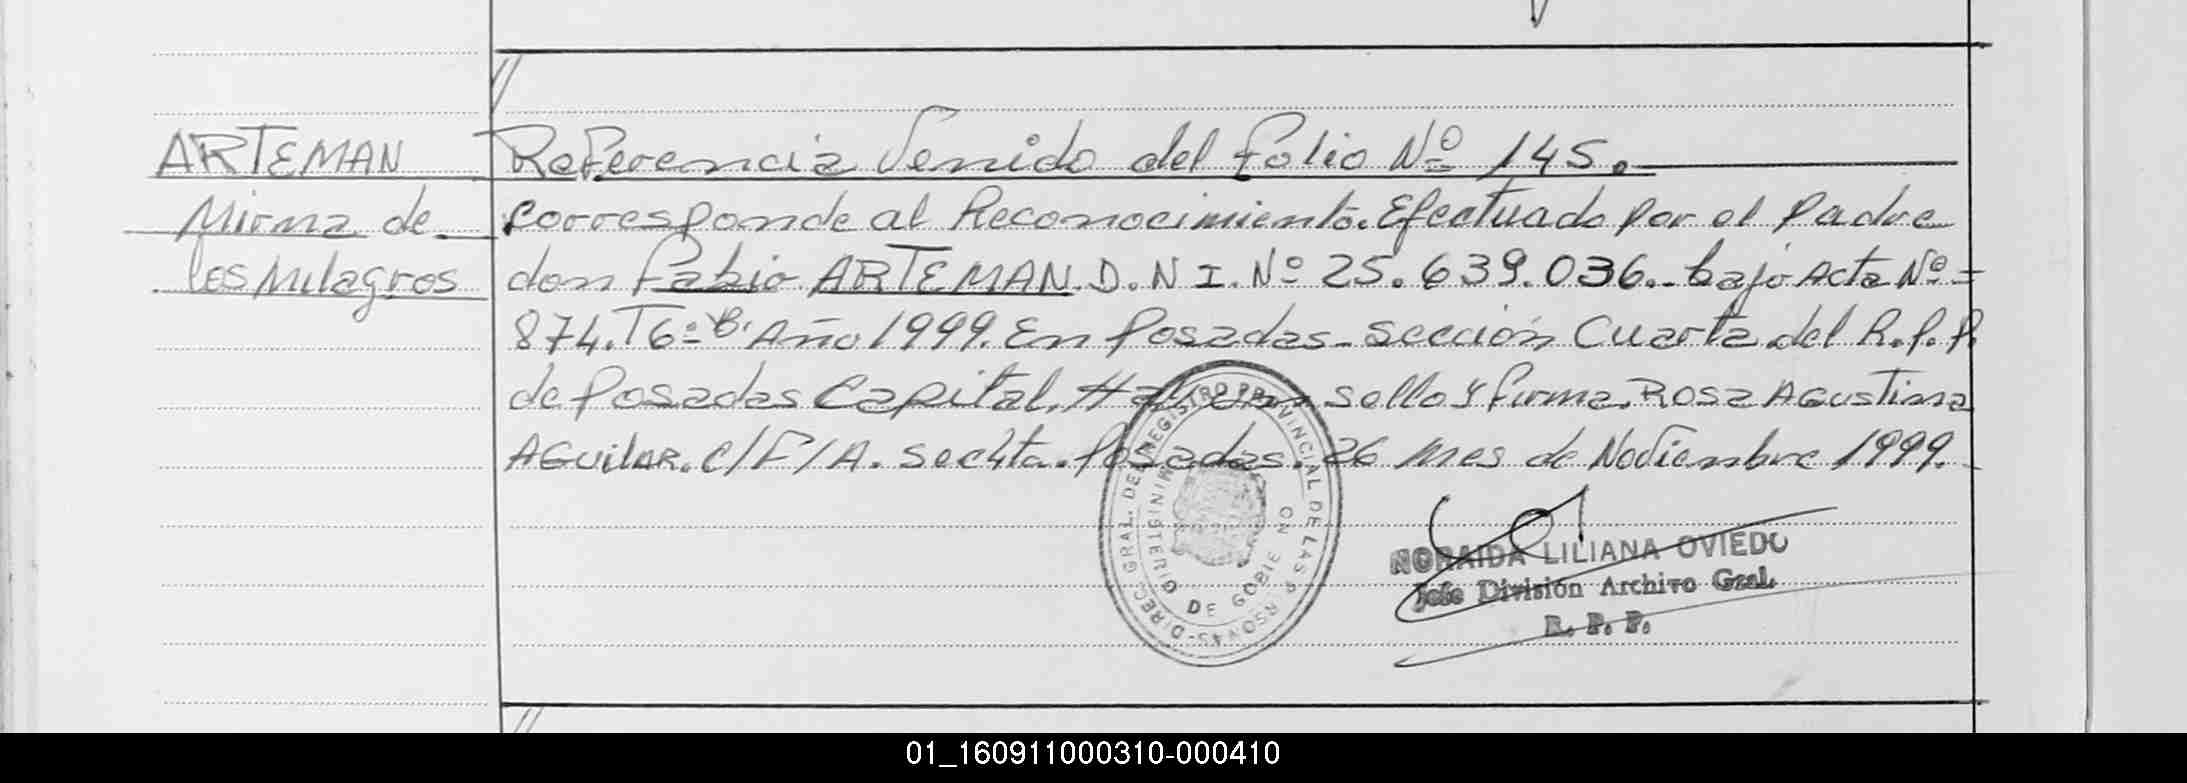 ARTEMAN
Mirna de
los Milagros
Referencia Venido del folio Nº 145.
Corresponde al Reconocimiento. Efectuado Por el Padre
don Fabio ARTEMAN. D.N I. Nº 25.639.036.. bajo Acta Nº-
874. T6º"B". Año 1999. En Posadas- Sección Cuarta del R.P.P.
de Posadas Capital. Hay un sello Y firma. ROSA AGustina
AGUilAR. E/F/A. Sec4ta. Posadas. 26 mes de Noviembre 1999.
DIREC. GRAL. DEL REGISTRO PROVINCIAL DE LAS P RSONAS
MINISTERIO DE GOBIE NO
NORAIDA LILIANA OVIEDO
Jefe División Archivo Gral.
R. P. P.
01_160911000310-000410